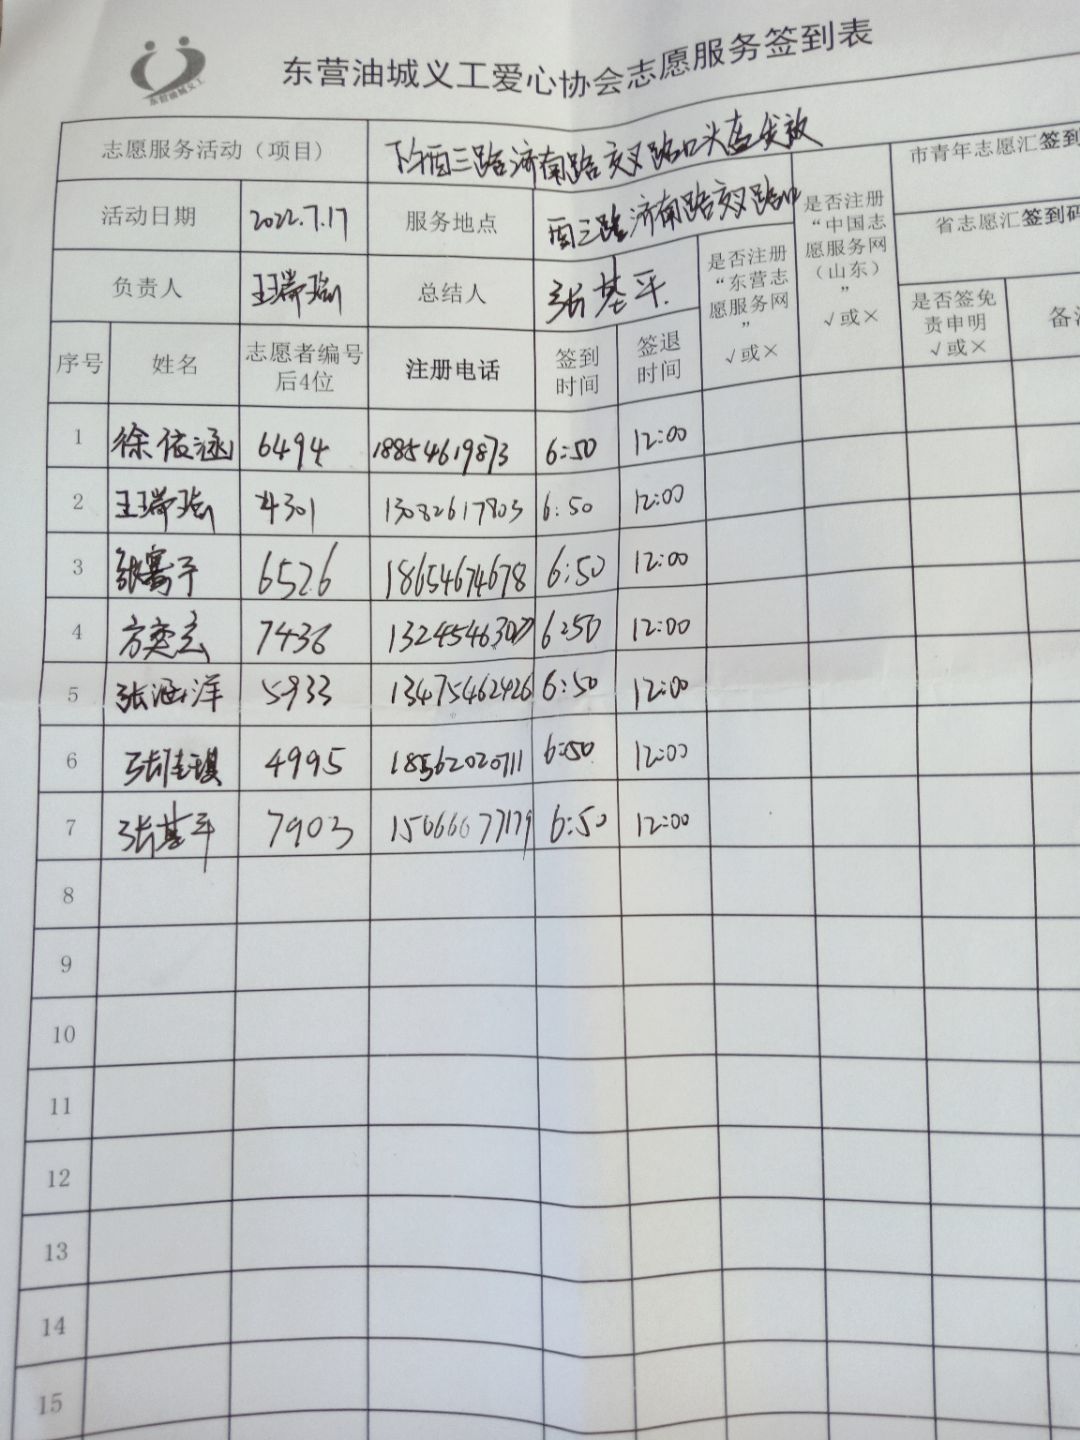 东营油城义工
东营油城义工爱心协会志愿服务签到表
志愿服务活动（项目） 下午西三路济南路交叉路口头盔发放
市青年志愿汇签到
活动日期 2022.7.17 服务地点 西三路济南路交叉路口
省志愿汇签到码
负责人 王瑞 总结人 张基平
是否注册“东营志愿服务网” √或×
是否注册“中国志愿服务网（山东）” √或×
是否签免责申明 √或×
序号 姓名 志愿者编号后4位 注册电话 签到时间 签退时间
1 徐依涵 6494 18854619873 6:50 12:00
2 王瑞 4301 13082617803 6:50 12:00
3 张 6526 18654674678 6:50 12:00
4 方奕 7436 6:50 12:00
5 张涵洋 5933 13475462426 6:50 12:00
6 张佳琪 4995 18562020711 6:50 12:00
7 张基平 7903 15066677179 6:50 12:00
8
9
10
11
12
13
14
15